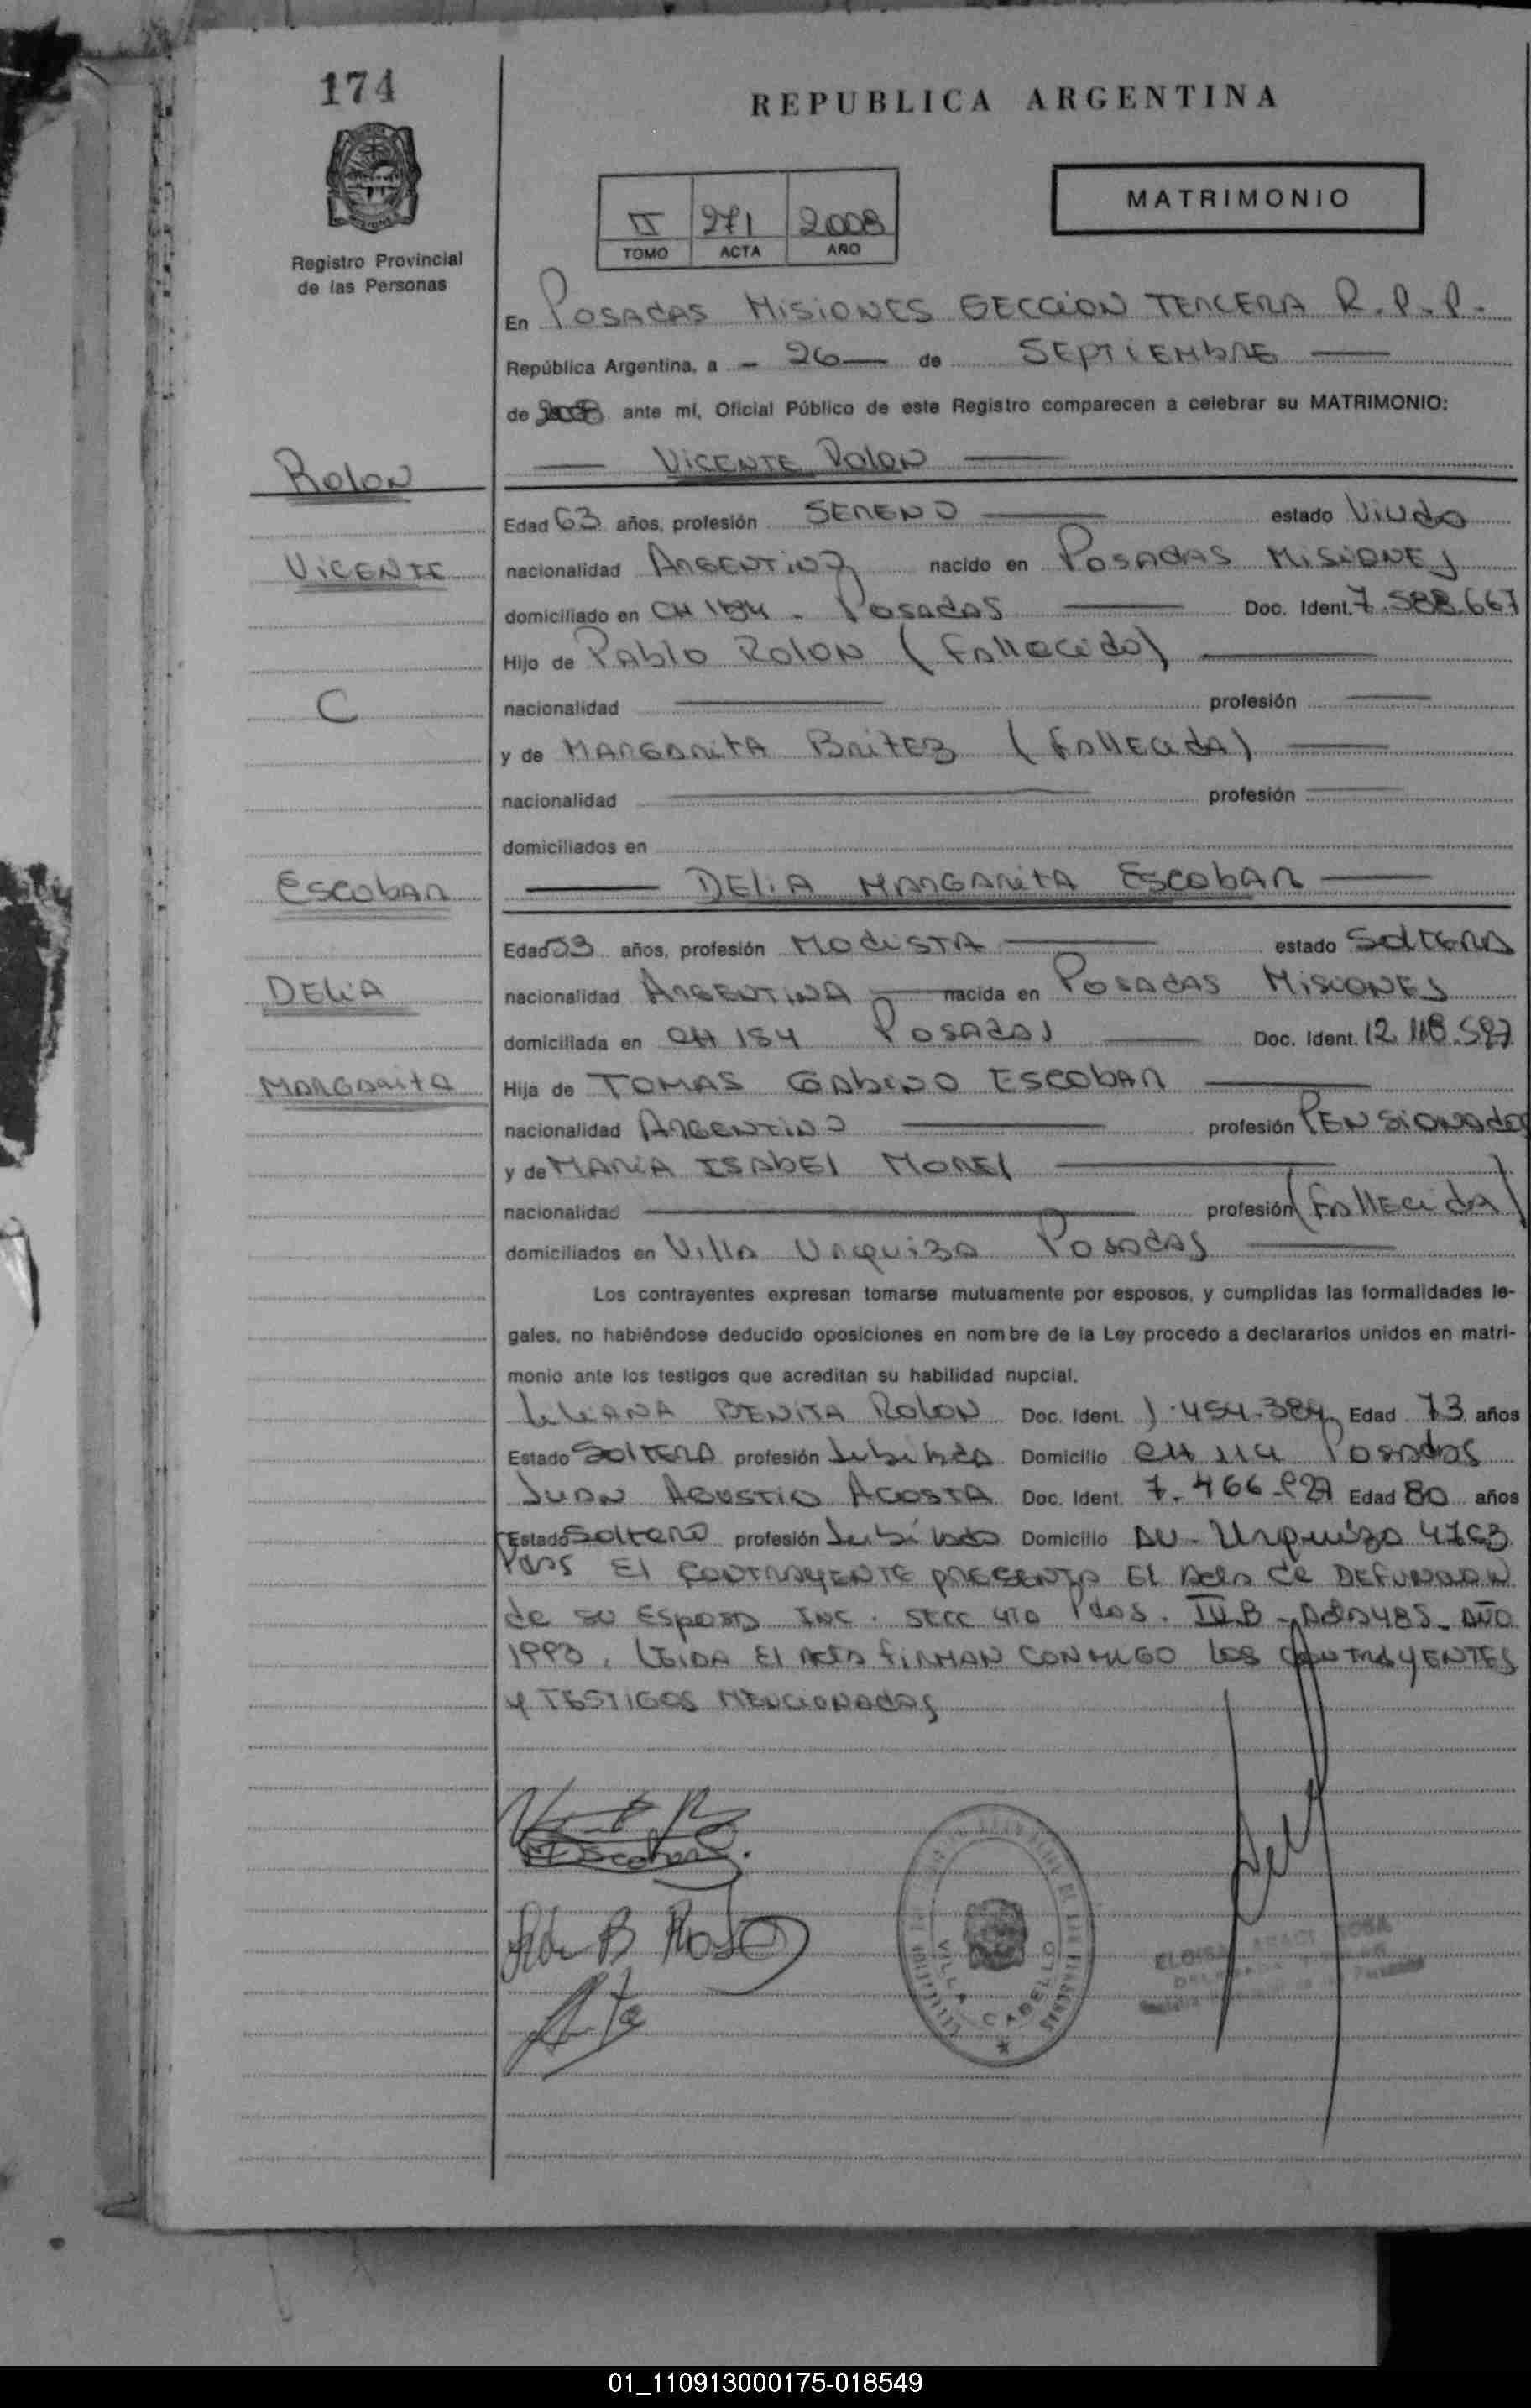 174
REPUBLICA ARGENTINA
MATRIMONIO
II 271 2008
TOMO ACTA AÑO
Registro Provincial
de las Personas
En POSADAS MISIONES SECCION TERCERA R.P.P.
República Argentina, a - 26 — de SEPTIEMBRE —
de 2008 ante mí, Oficial Público de este Registro comparecen a celebrar su MATRIMONIO:
Rolon
— VICENTE Rolon —
Edad 63 años, profesión SERENO — estado Viudo
VICENTE
nacionalidad ARGENTINO nacido en POSADAS MISIONES
domiciliado en CH 184 - Posadas — Doc. Ident. 7.588.667
Hijo de Pablo Rolon (Fallecido) —
C
nacionalidad — profesión —
y de MARGARITA BRITEZ (FALLECIDA) —
nacionalidad — profesión —
domiciliados en
ESCOBAR
— DELIA MARGARITA ESCOBAR —
Edad 53 años, profesión MODISTA — estado SOLTERA
DELIA
nacionalidad ARGENTINA — nacida en POSADAS MISIONES
domiciliada en CH 184 POSADAS — Doc. Ident. 12.118.597
MARGARITA
Hija de TOMAS GABINO ESCOBAR —
nacionalidad ARGENTINO — profesión PENSIONADO
y de MARIA ISABEL MOREL —
nacionalidad — profesión (FALLECIDA)
domiciliados en Villa URQUIZA POSADAS —
Los contrayentes expresan tomarse mutuamente por esposos, y cumplidas las formalidades le-
gales, no habiéndose deducido oposiciones en nombre de la Ley procedo a declararlos unidos en matri-
monio ante los testigos que acreditan su habilidad nupcial.
BENITA Rolon Doc. Ident. Edad 73 años
Estado SOLTERA profesión Jubilada Domicilio CH 114 Posadas
JUAN AGUSTIN ACOSTA Doc. Ident. Edad 80 años
Estado Soltero profesión Jubilado Domicilio AV. Urquiza 4763
Pdas El CONTRAYENTE PRESENTA El Acta de DEFUNCION
de su ESPOSA INC. SECC 4TA Pdas. AÑO
1993. LEIDA El ACTA FIRMAN CONMIGO LOS CONTRAYENTES
y TESTIGOS MENCIONADOS
Escobar
B Rolon
VILLA CABELLO
01_110913000175-018549